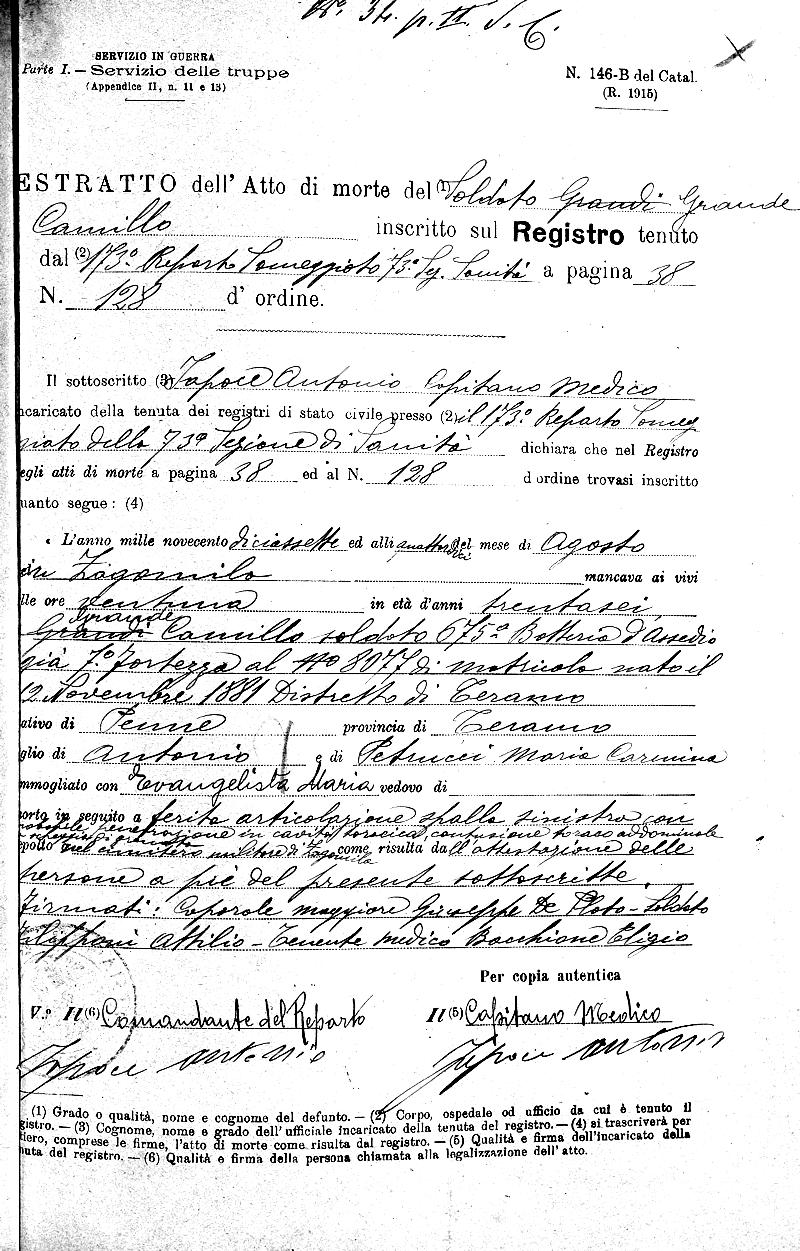 N. 34. p. II. S. C.
SERVIZIO IN GUERRA
Parte I. — Servizio delle truppe
(Appendice II, n. 11 e 13)
N. 146-B del Catal.
(R. 1915)
ESTRATTO dell' Atto di morte del (1) Soldato Grandi Grande
Camillo inscritto sul Registro tenuto
dal (2) 173° Reparto Someggiato 73a Sez. Sanità a pagina 38
N. 128 d' ordine.
Il sottoscritto (3) Antonio Capitano Medico
ncaricato della tenuta dei registri di stato civile presso (2) il 173° Reparto Someg
giato della 73a Sezione di Sanità dichiara che nel Registro
egli atti di morte a pagina 38 ed al N. 128 d ordine trovasi inscritto
uanto segue: (4)
« L'anno mille novecento diciassette ed alli quattordici del mese di Agosto
in Zagomila mancava ai vivi
lle ore ventuna in età d'anni trentasei
Grande
Grandi Camillo soldato 675a Batteria d'Assedio
già 7° Fortezza al N° 8077 di matricola nato il
12 Novembre 1881 Distretto di Teramo
ativo di Penne provincia di Teramo
glio di Antonio e di Petrucci Maria Carmina
mmogliato con Evangelista Maria vedovo di
orto in seguito a ferita articolazione spalla sinistra con
probabile penetrazione in cavità toracica, contusione toraco addominale
polto nel cimitero militare di Zagomila come risulta dall'attestazione delle
persone a piè del presente sottoscritte.
Firmati: Caporale maggiore Giuseppe De Plato - Soldato
Filipponi Attilio - Tenente medico Bacchione Eligio
Per copia autentica
V.° Il (6) Comandante del Reparto
Il (5) Capitano Medico
Antonio
Antonio
(1) Grado o qualità, nome e cognome del defunto. — (2) Corpo, ospedale od ufficio da cui è tenuto il
gistro. — (3) Cognome, nome e grado dell'ufficiale incaricato della tenuta del registro. — (4) si trascriverà per
tiero, comprese le firme, l'atto di morte come risulta dal registro. — (5) Qualità e firma dell'incaricato della
nuta del registro. — (6) Qualità e firma della persona chiamata alla legalizzazione dell'atto.